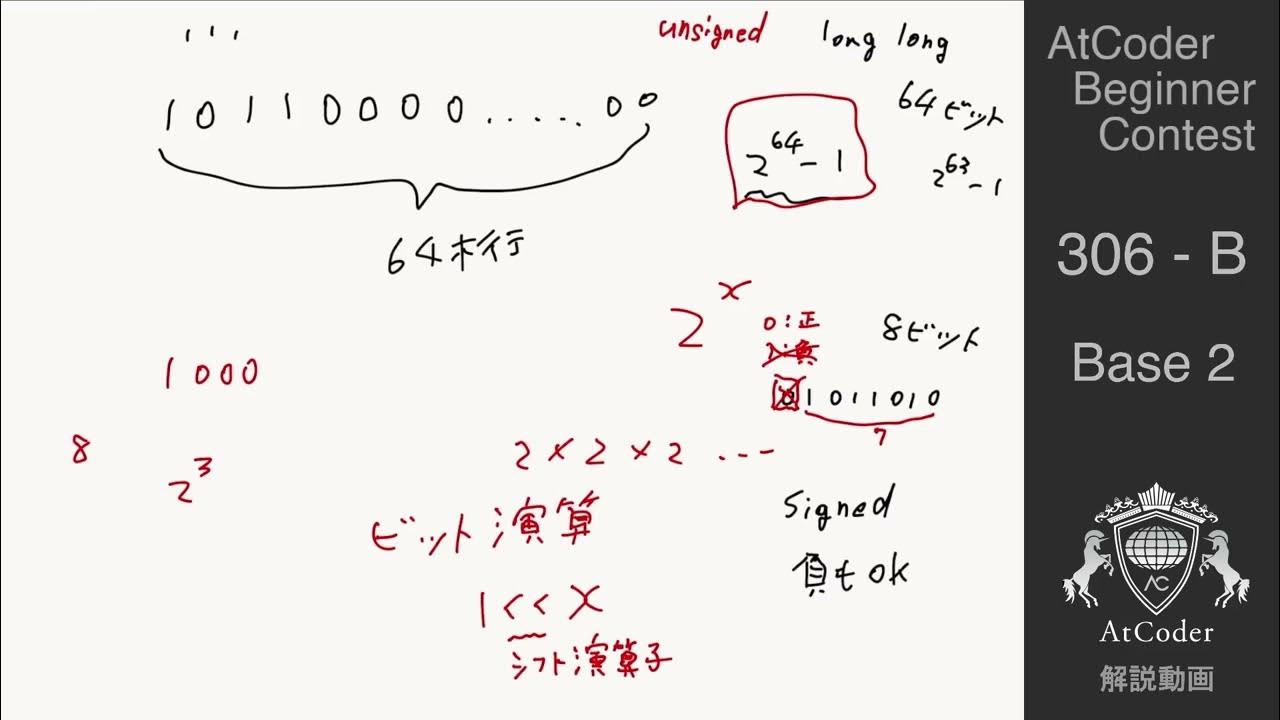 unsigned long long
10110000.....00
64桁
64ビット
2^64-1
2^63-1
2^x
0:正
1:負
8ビット
01011010
7
1000
8
2^3
2×2×2 ...
ビット演算
1<<X
シフト演算子
Signed
負もok
AtCoder
Beginner
Contest
306 - B
Base 2
AC
AtCoder
解説動画